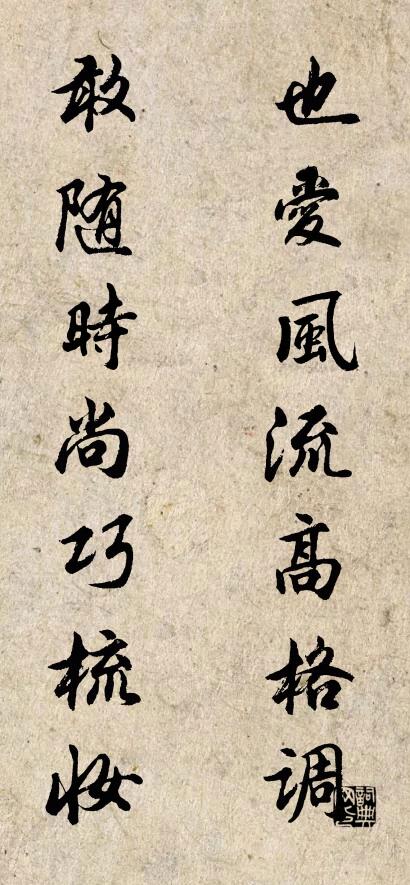 也愛風流高格調
敢随時尚巧梳妝